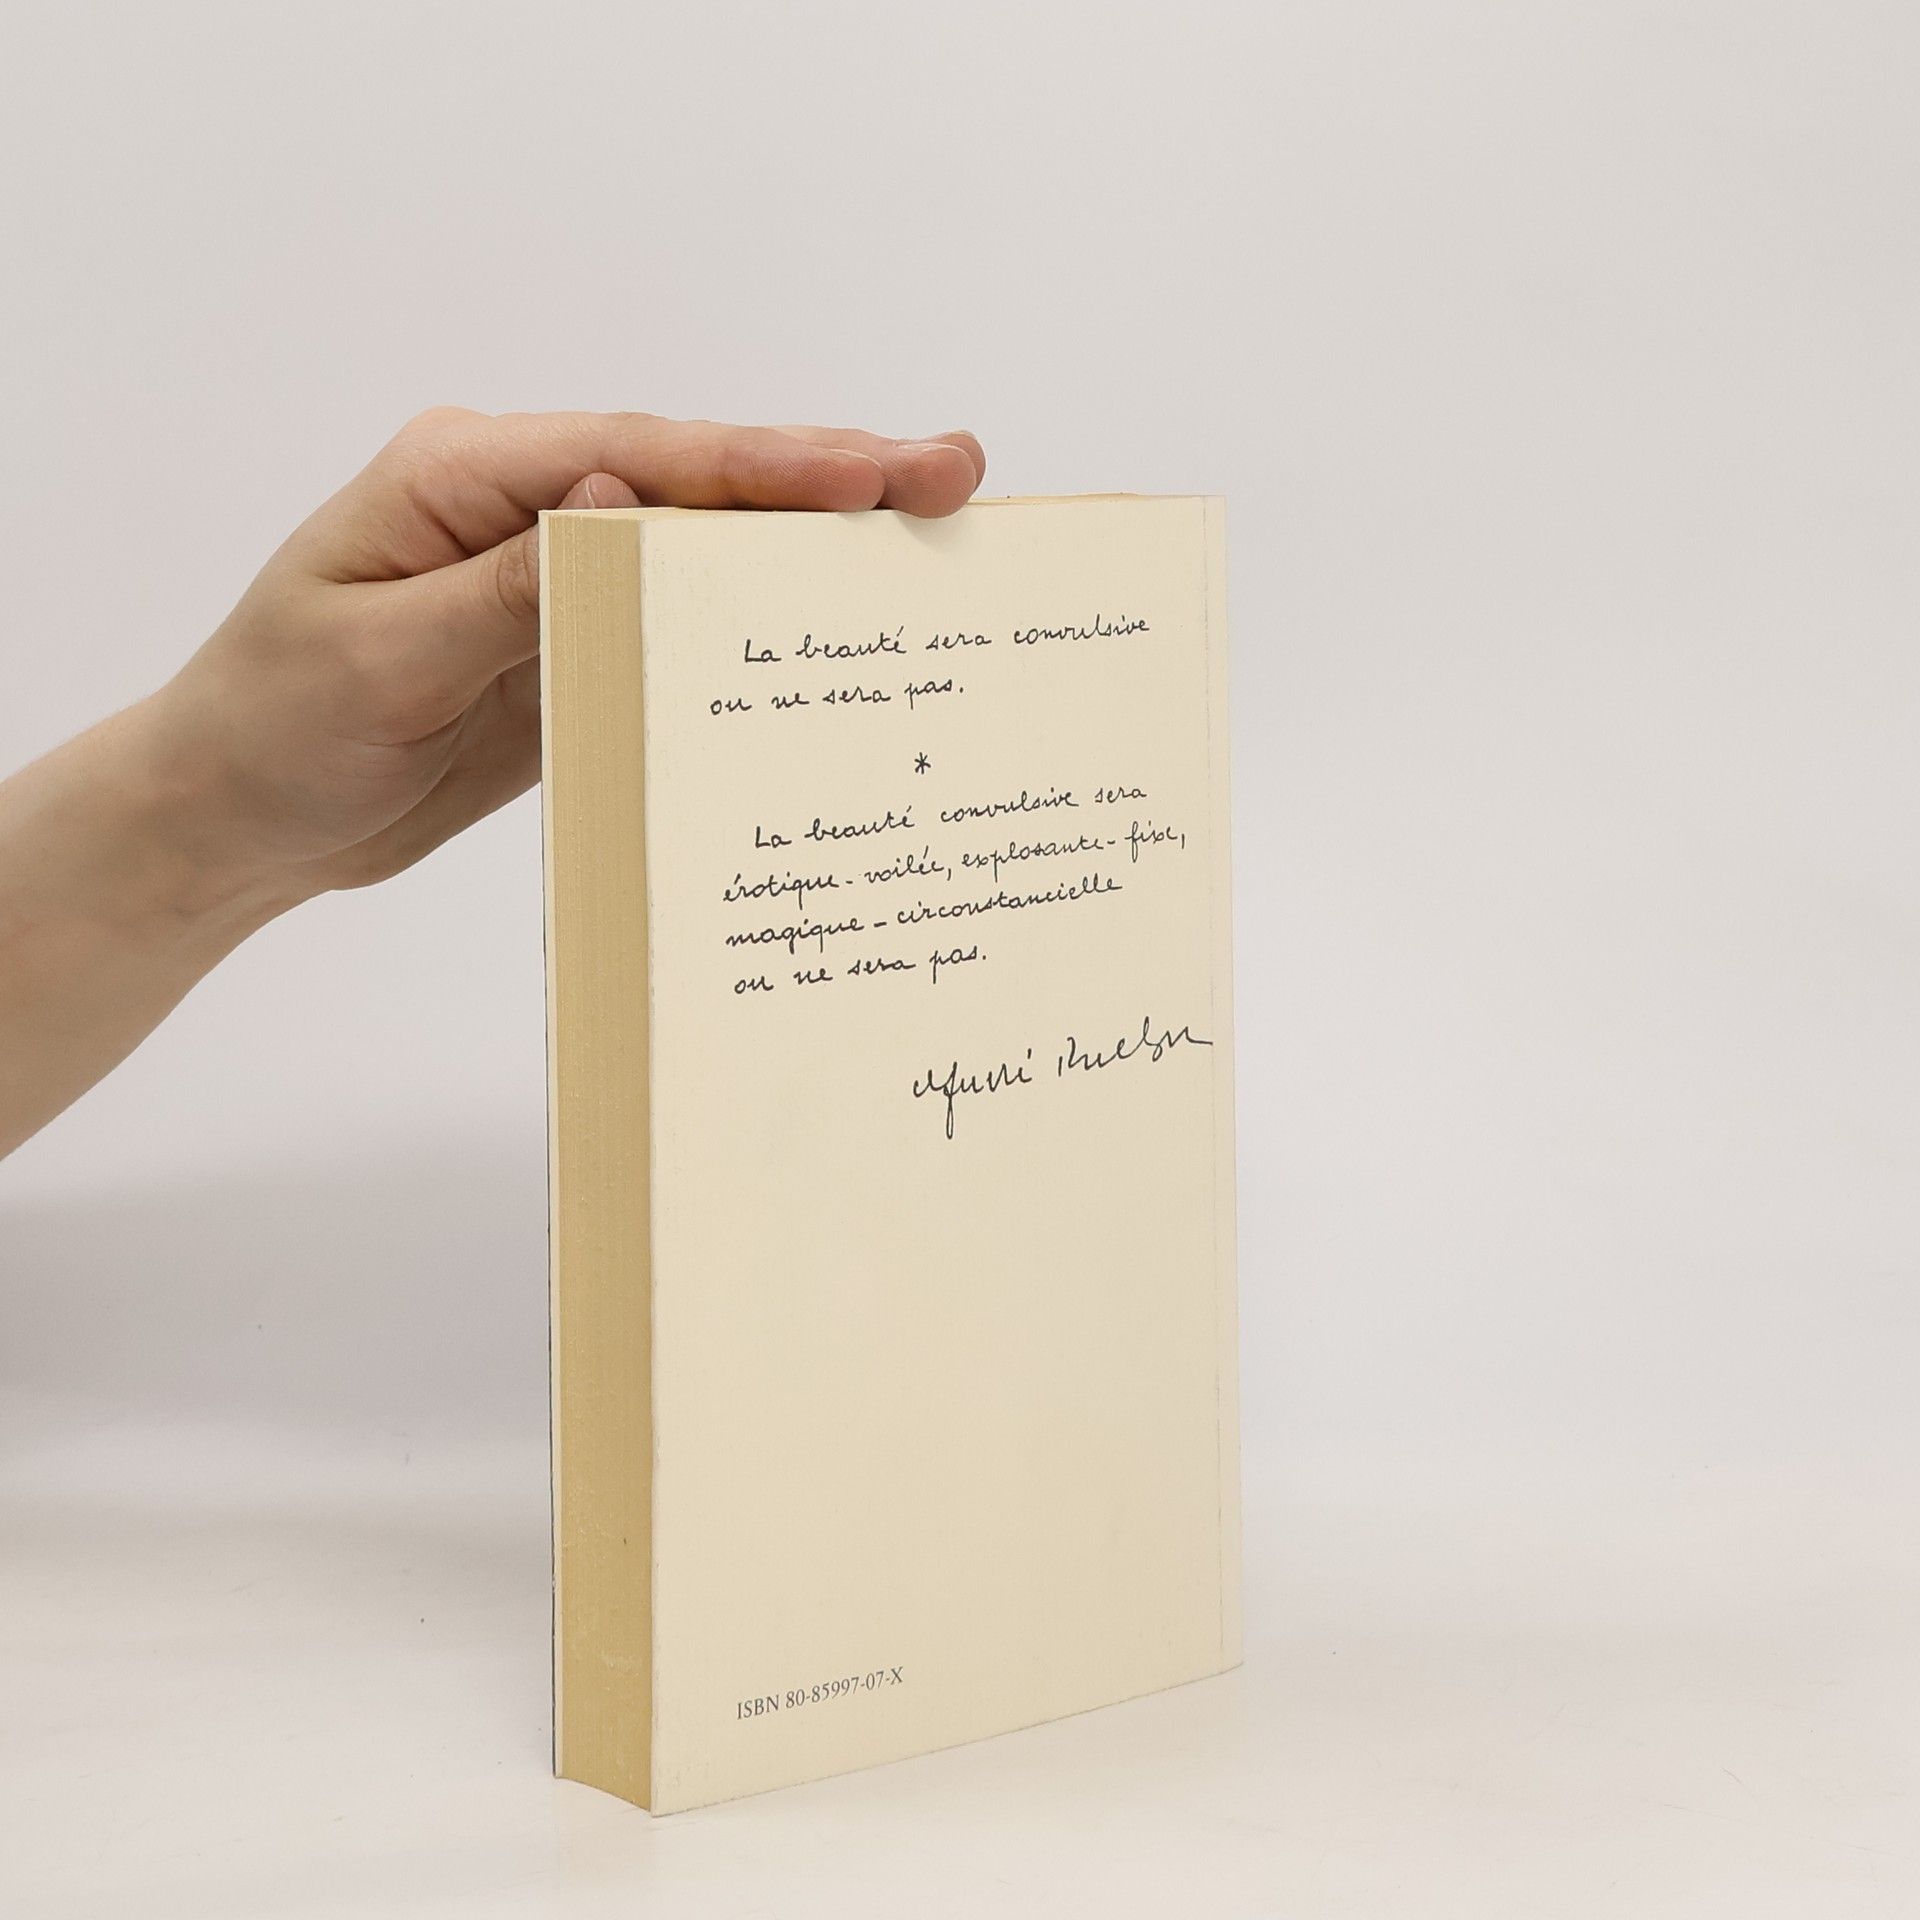 La beauté sera convulsive
ou ne sera pas.
*
La beauté convulsive sera
érotique-voilée, explosante-fixe,
magique-circonstancielle
ou ne sera pas.
ISBN 80-85997-07-X